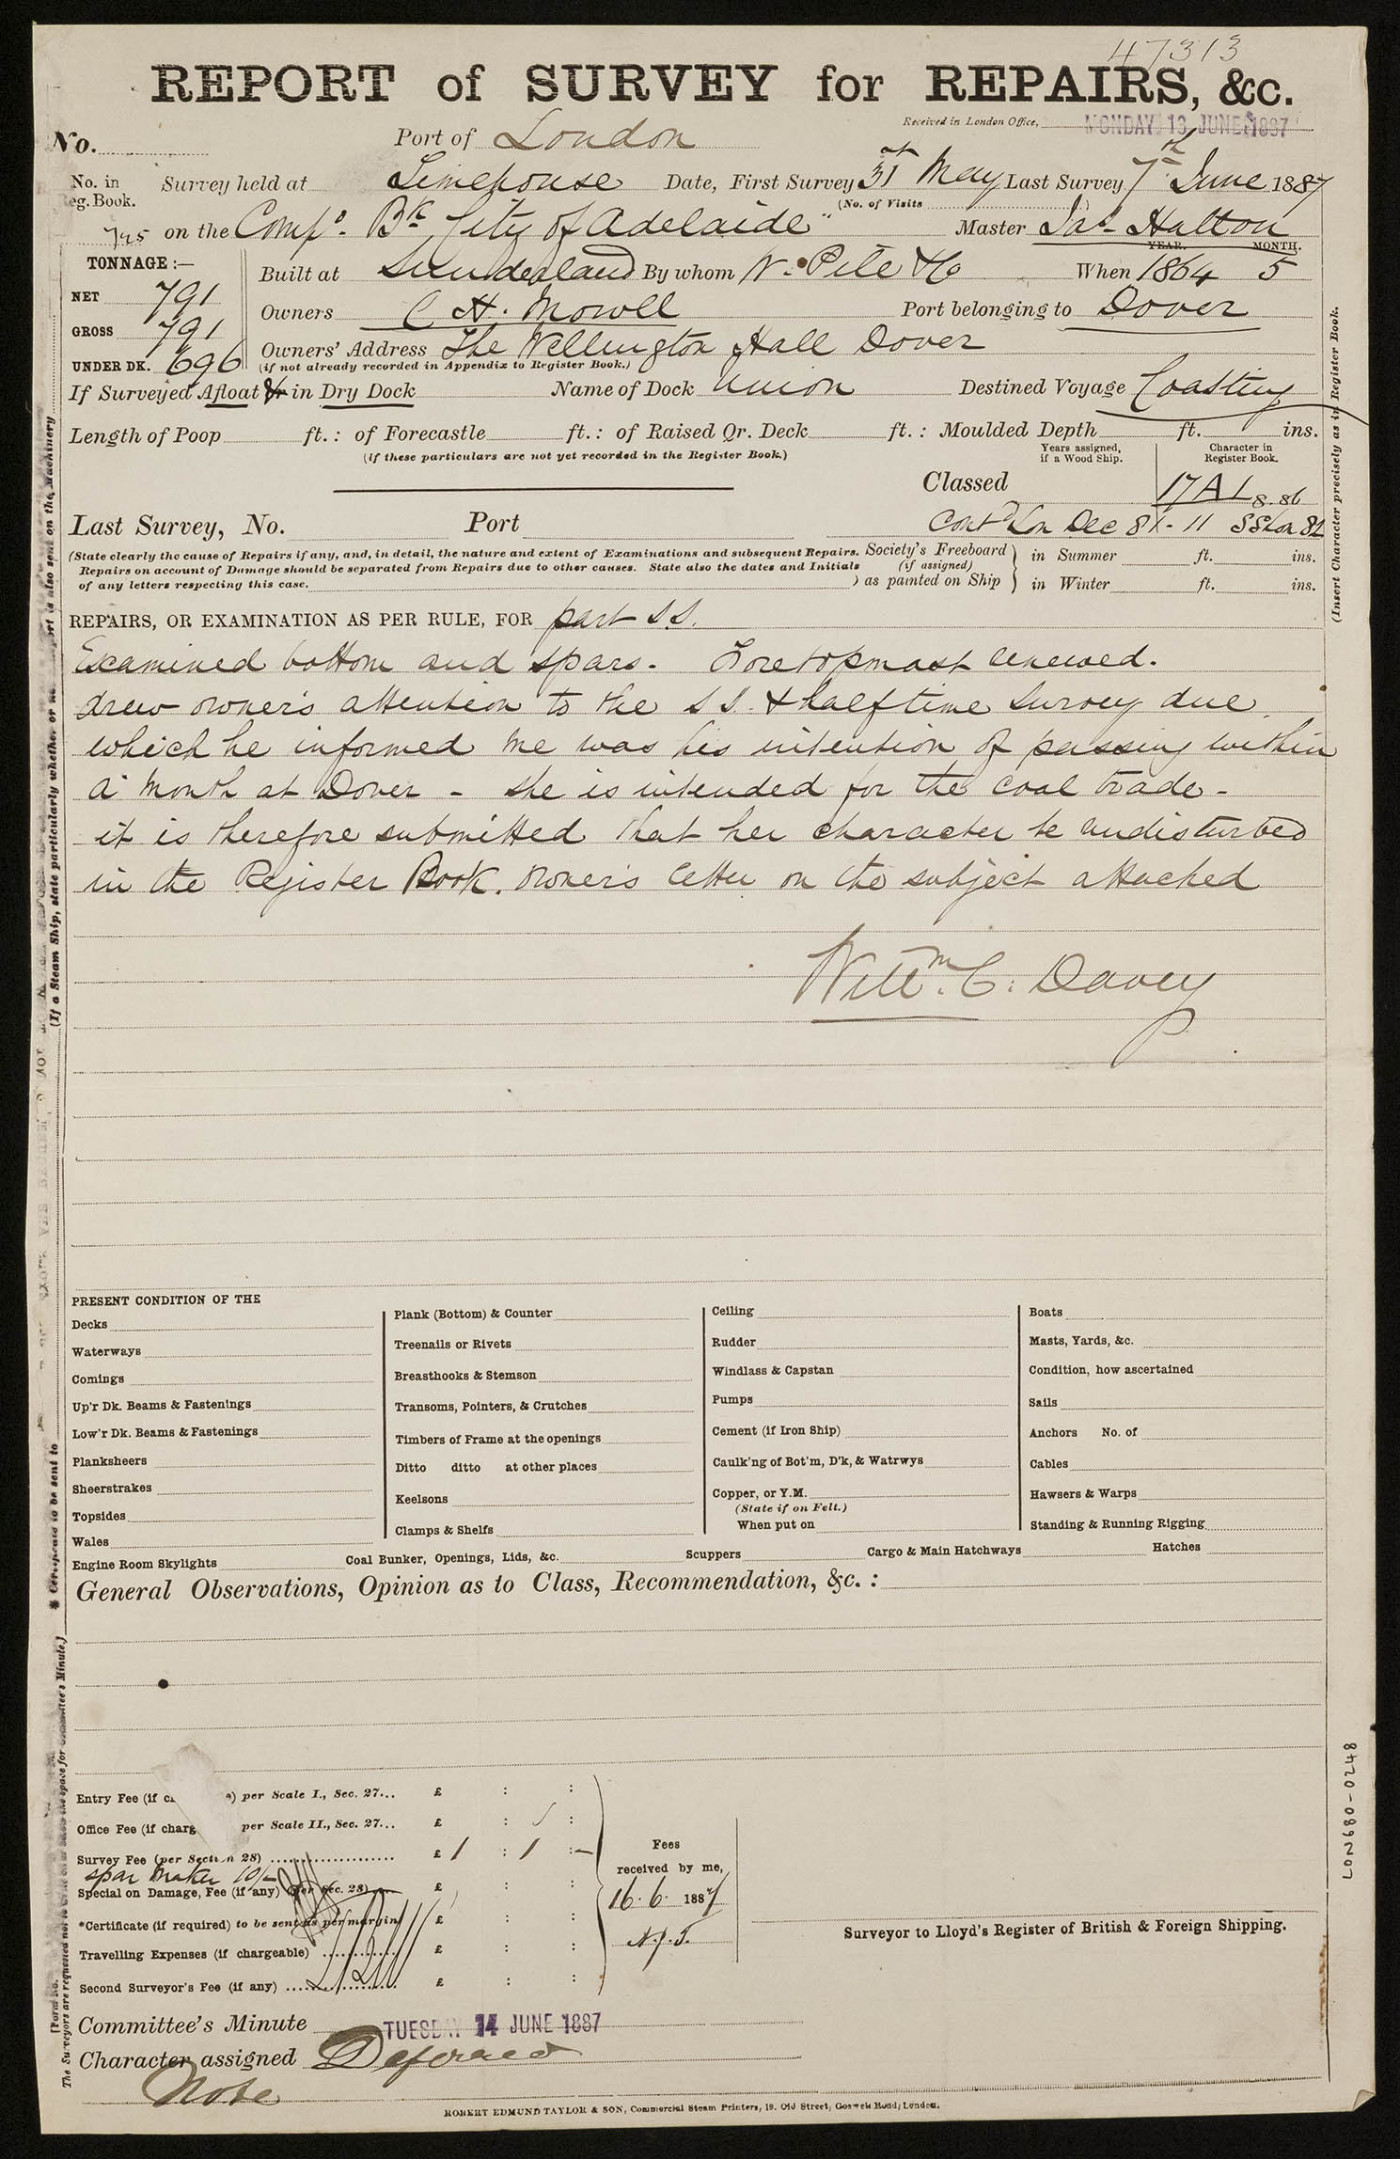 47313
REPORT of SURVEY for REPAIRS, &c.
Received in London Office, MONDAY 13 JUNE 1887
No. Port of London
No. in eg. Book. Survey held at Limehouse Date, First Survey 31st May Last Survey 7th June 1887
(No. of Visits )
795 on the Compo. Bk. City of Adelaide" Master Jas. Hatton
TONNAGE :— YEAR. MONTH.
Built at Sunderland By whom W. Pile & Co When 1864 5
NET 791
Owners C H. Mowll Port belonging to Dover
GROSS 791
Owners' Address The Wellington Hall Dover
UNDER DK. 696 (if not already recorded in Appendix to Register Book.)
If Surveyed Afloat or in Dry Dock Name of Dock Union Destined Voyage Coasting
Length of Poop ft.: of Forecastle ft.: of Raised Qr. Deck ft.: Moulded Depth ft. ins.
(If these particulars are not yet recorded in the Register Book.)
Years assigned, if a Wood Ship. Character in Register Book.
Classed 17A1 8.86
Last Survey, No. Port Contd Lon Dec 81-11 SSLon 82
(State clearly the cause of Repairs if any, and, in detail, the nature and extent of Examinations and subsequent Repairs.
Repairs on account of Damage should be separated from Repairs due to other causes. State also the dates and Initials
of any letters respecting this case. )
Society's Freeboard (if assigned) as painted on Ship } in Summer ft. ins.
in Winter ft. ins.
REPAIRS, OR EXAMINATION AS PER RULE, FOR part S S.
Examined bottom and spars. Foretopmast renewed.
drew owner's attention to the S S. & halftime survey due
which he informed me was his intention of passing within
a month at Dover - she is intended for the coal trade -
it is therefore submitted that her character be undisturbed
in the Register Book. owner's letter on the subject attached
Willm. C. Davey
PRESENT CONDITION OF THE
Decks
Waterways
Comings
Up'r Dk. Beams & Fastenings
Low'r Dk. Beams & Fastenings
Planksheers
Sheerstrakes
Topsides
Wales
Plank (Bottom) & Counter
Treenails or Rivets
Breasthooks & Stemson
Transoms, Pointers, & Crutches
Timbers of Frame at the openings
Ditto ditto at other places
Keelsons
Clamps & Shelfs
Ceiling
Rudder
Windlass & Capstan
Pumps
Cement (if Iron Ship)
Caulk'ng of Bot'm, D'k, & Watrwys
Copper, or Y.M.
(State if on Felt.)
When put on
Boats
Masts, Yards, &c.
Condition, how ascertained
Sails
Anchors No. of
Cables
Hawsers & Warps
Standing & Running Rigging
Engine Room Skylights Coal Bunker, Openings, Lids, &c. Scuppers Cargo & Main Hatchways Hatches
General Observations, Opinion as to Class, Recommendation, &c. :
Entry Fee (if per Scale I., Sec. 27... £ : :
Office Fee (if charg per Scale II., Sec. 27... £ : :
Survey Fee (per Section 28) £ 1 : 1 : -
spar maker 10/-
Special on Damage, Fee (if any) (per Sec. 28) £ : :
*Certificate (if required) to be sent as per margin £ : :
Travelling Expenses (if chargeable) £ : :
Second Surveyor's Fee (if any) £ : :
Fees
received by me,
16.6.1887
Surveyor to Lloyd's Register of British & Foreign Shipping.
Committee's Minute TUESDAY 14 JUNE 1887
Character assigned Deferred
Note
ROBERT EDMUND TAYLOR & SON, Commercial Steam Printers, 19, Old Street, Goswell Road, London.
(Insert Character precisely as in Register Book.
LON680-0248
(If a Steam Ship, state particularly whether or no
rt is also sent on the Machinery
* Certificate to be sent to
The Surveyors are requested not to
the space for Committee's Minute.]
[Form No.